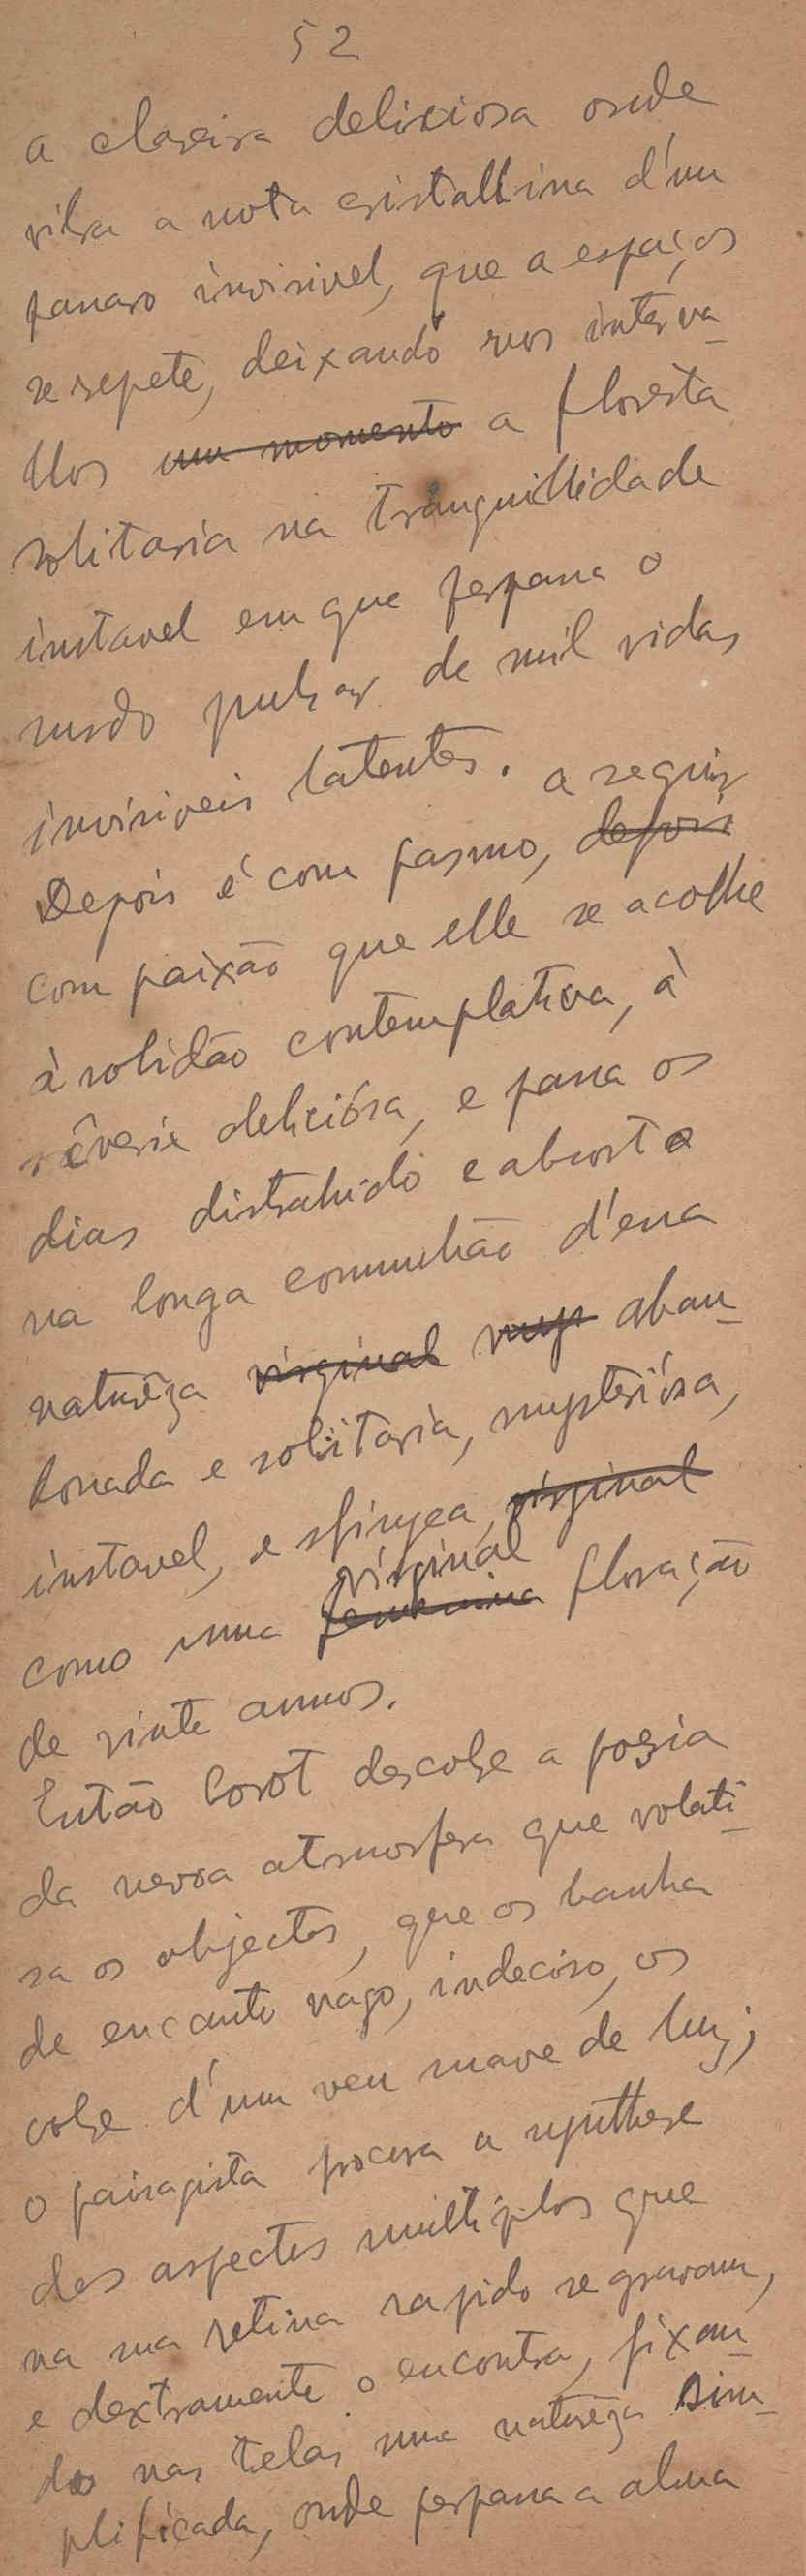 52
a clareira deliciosa onde
vibra a nota cristallina d'um
passaro invisivel, que a espaços
se repete, deixando nos interva-
llos um momento a floresta
solitaria na tranquillidade
instavel em que perpassa o
surdo pulsar de mil vidas
invisiveis latentes. a seguir
Depois é com pasmo, depois
com paixão que elle se acolhe
à solidão contemplativa, à
rêverie deliciósa, e passa os
dias distrahido e absorto
na longa communhão d'essa
naturêza virginal abau-
donada e solitaria, mysteriósa,
instavel, e sfingea, virginal
virginal
como uma femenina floração
de vinte annos.
Então Corot descobre a poesia
da nevoa atmosfera que volati-
sa os objectos, que os banha
de encanto vago, indeciso, os
cobre d'um veu suave de luz;
o paisagista procura a synthese
dos aspectos multiplos que
na sua retina rapido se gravam,
e dextramente o encontra, fixan-
do nas telas uma naturêza sim-
plificada, onde perpassa a alma